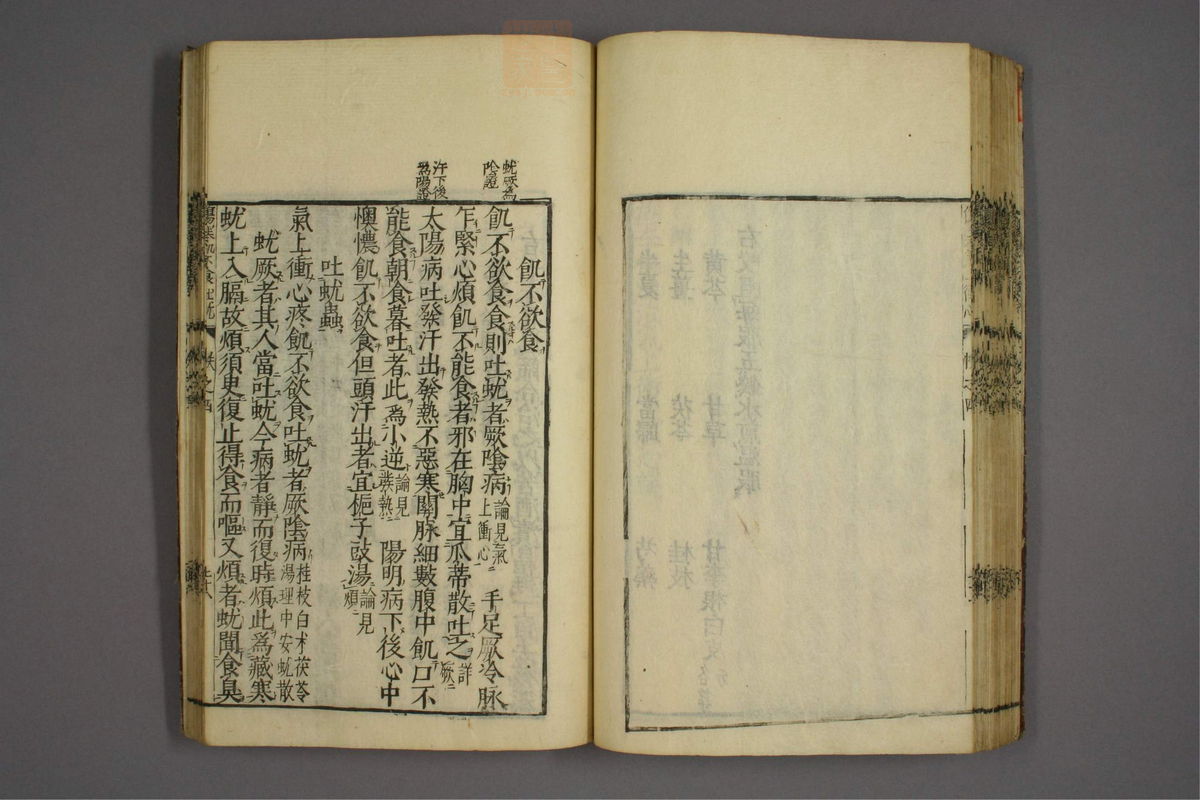 飢不欲食
飢不欲食食則吐蚘者厥陰病論見氣上衝心 手足厥冷脉
乍緊心煩飢不能食者邪在胸中宜瓜蒂散吐之詳厥
太陽病吐發汗出發熱不惡寒關脉細數腹中飢口不
能食朝食暮吐者此爲小逆論見發熱 陽明病下後心中
懊憹飢不欲食但頭汗出者宜梔子豉湯論見煩
吐蚘蟲
氣上衝心疼飢不欲食吐蚘者厥陰病桂枝白朮茯苓湯理中安蚘散
蚘厥者其人當吐蚘令病者靜而復時煩此爲藏寒
蚘上入膈故煩須臾復止得食而嘔又煩者蚘聞食臭
蚘厥爲
陰證
汗下後
爲陽證